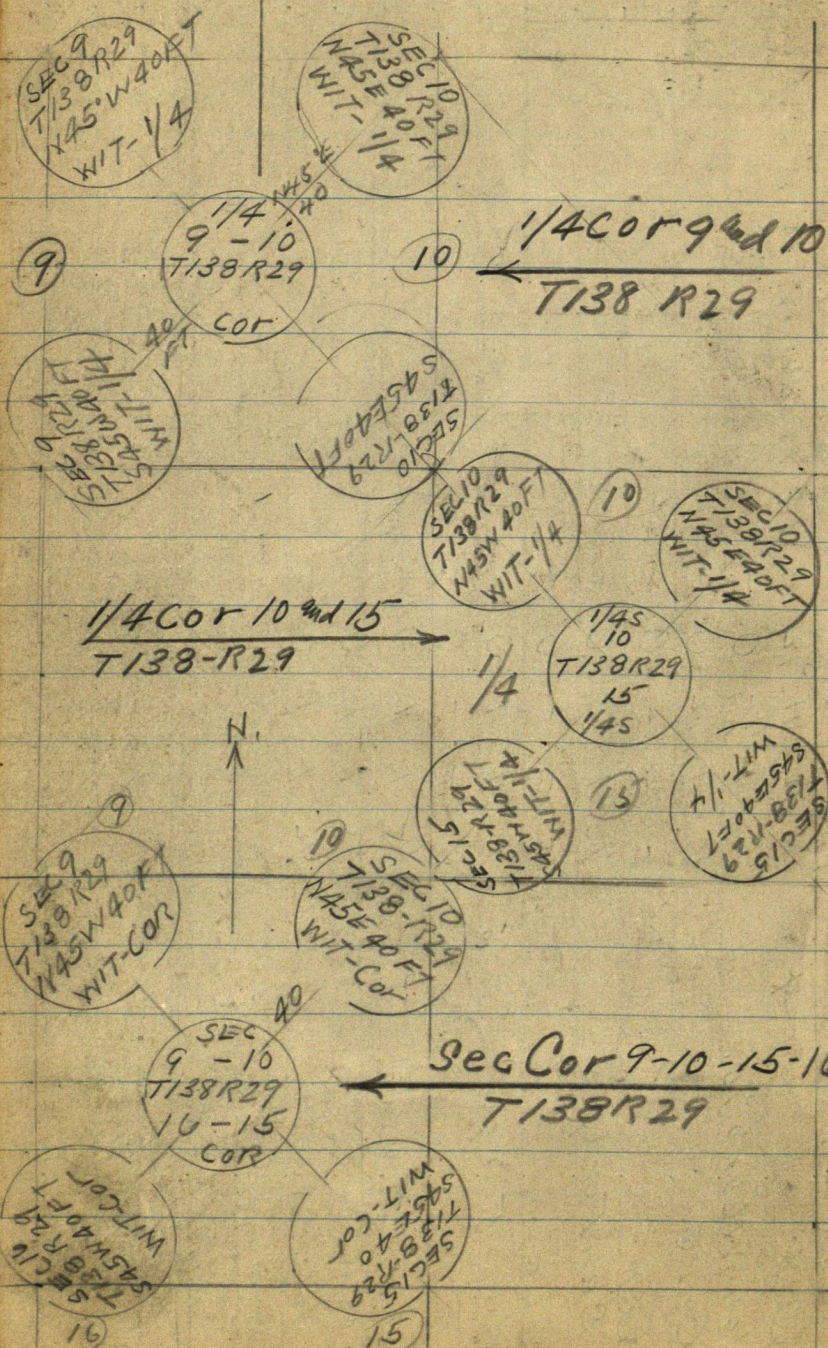 SEC 9
T138R29
N45°W40FT
WIT-1/4
SEC 10
T138 R29
N45E 40FT
WIT-1/4
N45°E
40
1/4
9 - 10
T138R29
Cor
9
10
1/4 Cor 9 and 10
T138 R29
40
FT.
SEC 9
T138R29
S45W40FT
WIT-1/4
SEC10
T138-R29
S45E40FT
SEC10
T138R29
N45W40FT
WIT-1/4
10
SEC10
T138R29
N45E40FT
WIT-1/4
1/4 Cor 10 and 15
T138-R29
1/4S
10
T138R29
15
1/4S
1/4
N.
SEC15
T138-R29
S45W40FT
WIT-1/4
15
SEC15
T138-R29
S45E40FT
WIT-1/4
9
SEC 9
T138R29
N45W40FT
WIT-COR
10
SEC 10
T138-R29
N45E40FT
WIT-Cor
40
SEC
9 - 10
T138R29
16 - 15
COR
Sec Cor 9-10-15-16
T138R29
SEC16
T138R29
S45W40FT
WIT-Cor
SEC15
T138-R29
S45E40
WIT-Cor
16
15